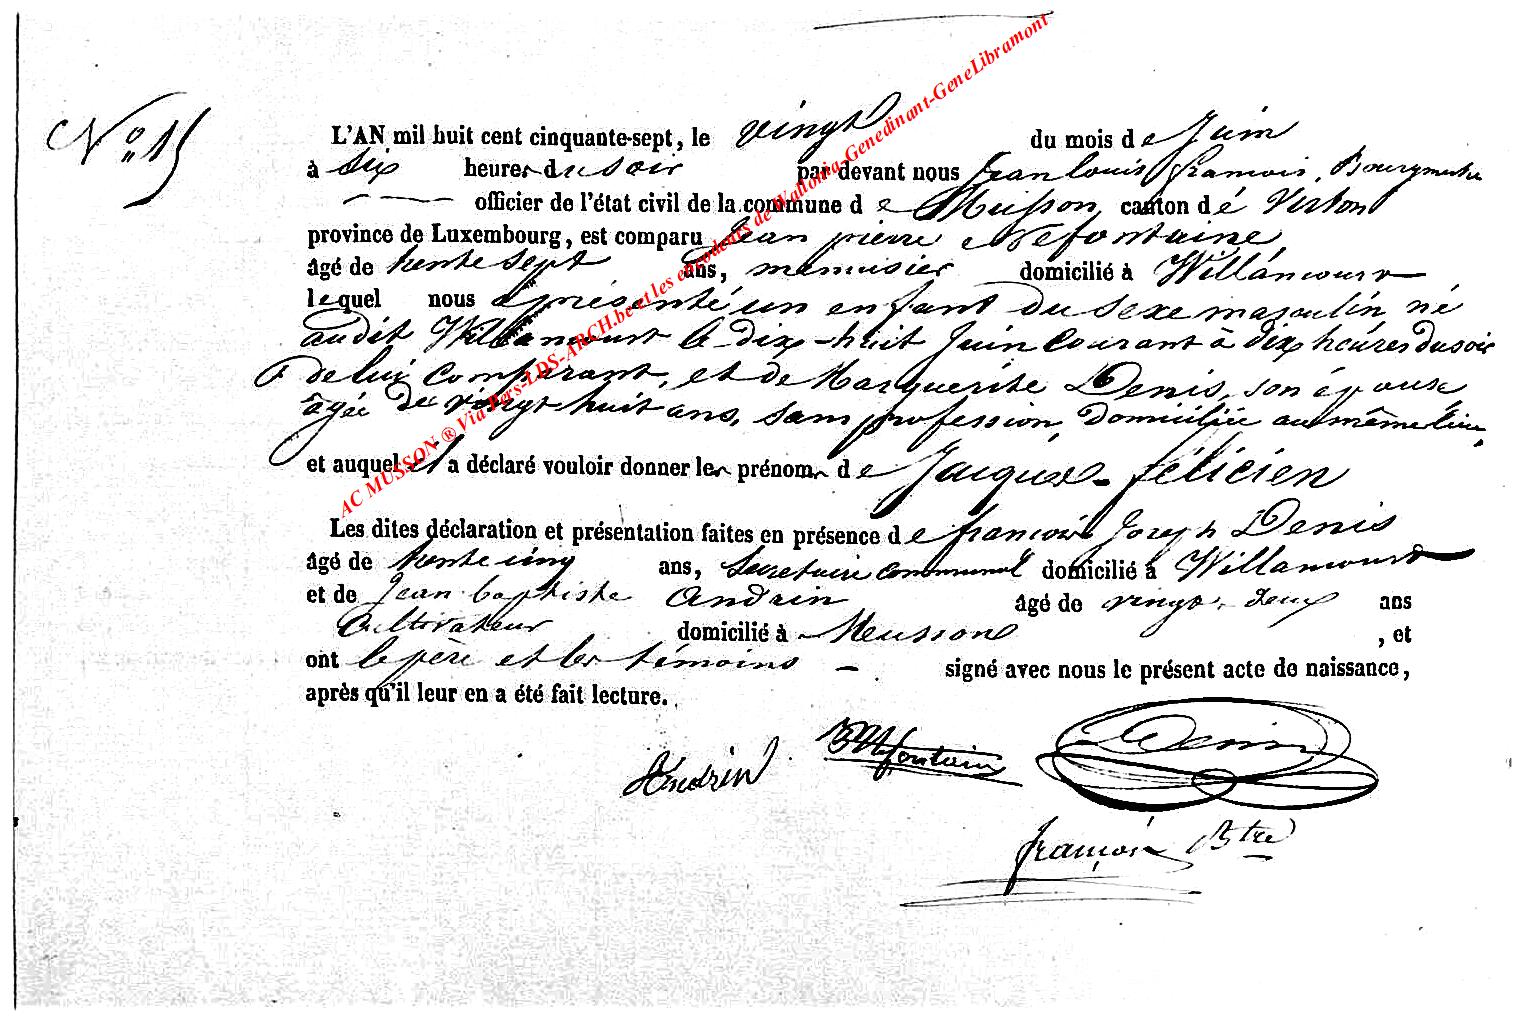 N° 15
L'AN mil huit cent cinquante-sept, le vingt du mois de Juin
à six heures du soir par devant nous Jean Louis François, Bourgmestre
officier de l'état civil de la commune de Musson, canton de Virton
province de Luxembourg, est comparu Jean pierre Nefontaine,
âgé de trente sept ans, menuisier domicilié à Willancourt
lequel nous a présenté un enfant du sexe masculin né
audit Willancourt le dix-huit Juin courant à dix heures du soir
de lui comparant, et de Marguerite Denis, son épouse
âgée de vingt huit ans, sans profession, domiciliée au même lieu,
et auquel il a déclaré vouloir donner les prénoms de Jacques félicien
Les dites déclaration et présentation faites en présence de françois Joseph Denis
âgé de trente cinq ans, Secretaire communal domicilié à Willancourt
et de Jean baptiste Andrin âgé de vingt-deux ans
Cultivateur domicilié à Musson, et
ont le père et les témoins signé avec nous le présent acte de naissance,
après qu'il leur en a été fait lecture.
Andrin Nefontaine Denis
françois Btre
AC MUSSON ® Via Pers-LDS-ARCH.be et les encodeurs de Wallonia-Genedinant-GeneLibramont